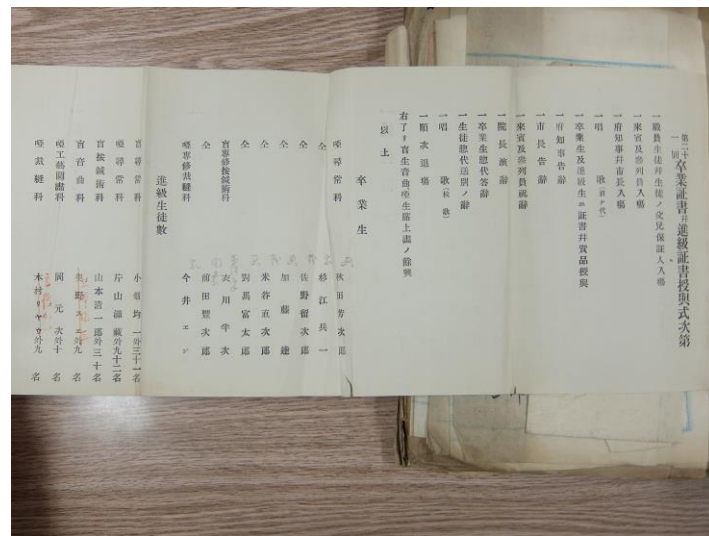 第二十一回卒業証書并進級証書授與式次第
一職員生徒并生徒ノ父兄保証人入場
一來賓及參列員入場
一府知事并市長入場
一唱 歌(君ガ代)
一卒業生及進級生ニ証書并賞品授與
一府知事告辭
一市長告辭
一來賓及參列員祝辭
一院長演辭
一卒業生惣代答辭
一生徒惣代送別ノ辭
一唱 歌
一順次退場
右了リ盲生音曲啞生席上畵ノ餘興
以上
卒業生
啞尋常科 秋田芳次郎
仝 杉江長一
仝 佐野留次郎
仝 加藤達
仝 米谷直次郎
仝 對馬富太郎
仝 衣川幸次
盲專修按鍼術科 前田豐次郎
啞專修裁縫科 今井エン
進級生徒數
盲尋常科 均一外三十一名
啞尋常科 片山 藏外九十二名
盲按鍼術科 山本 一郎外三十名
盲音曲科 野 エ外九名
啞工藝圖畵科 岡元次外十名
啞裁縫科 木村 外九名